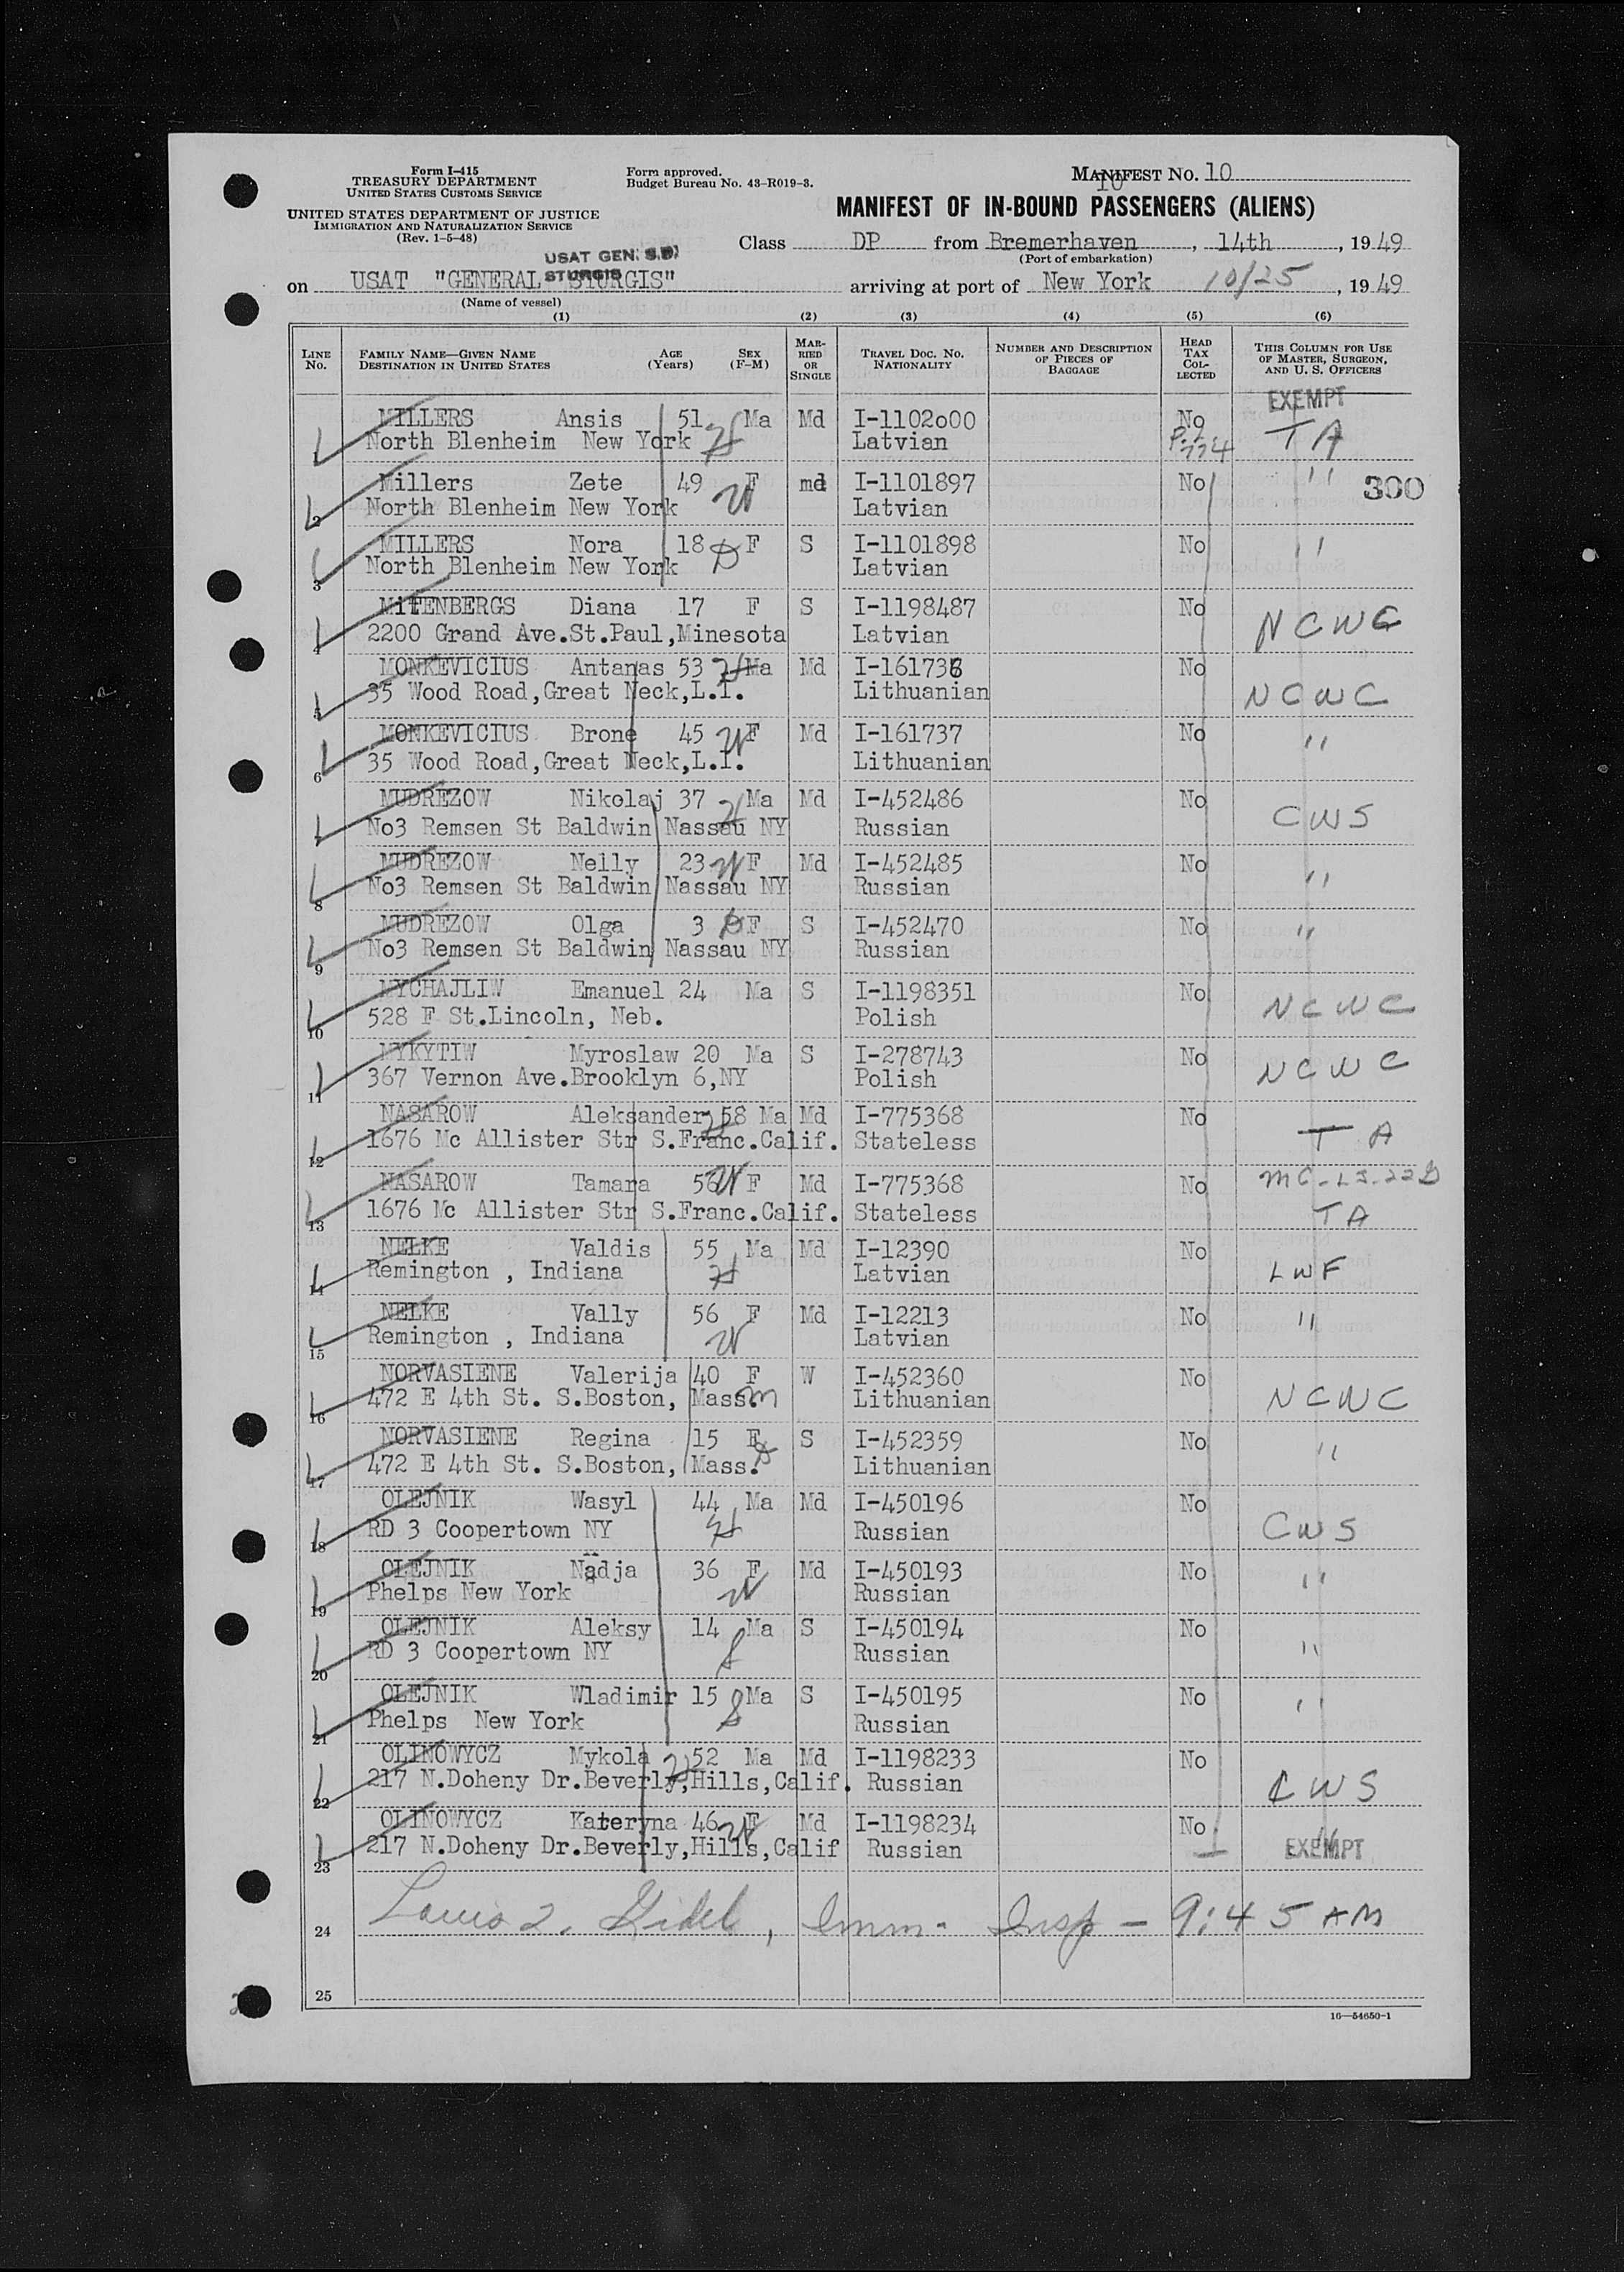 Form I-415
TREASURY DEPARTMENT
UNITED STATES CUSTOMS SERVICE
UNITED STATES DEPARTMENT OF JUSTICE
IMMIGRATION AND NATURALIZATION SERVICE
(Rev. 1-5-48)
Form approved.
Budget Bureau No. 43-R019-3.
MANIFEST No. 10
10
MANIFEST OF IN-BOUND PASSENGERS (ALIENS)
Class DP from Bremerhaven, 14th, 1949
(Port of embarkation)
USAT GEN. S.D.
STURGIS
on USAT "GENERAL STURGIS" arriving at port of New York 10/25, 1949
(Name of vessel)
(1) (2) (3) (4) (5) (6)
LINE No. FAMILY NAME—GIVEN NAME DESTINATION IN UNITED STATES AGE (Years) SEX (F-M) MARRIED OR SINGLE TRAVEL DOC. NO. NATIONALITY NUMBER AND DESCRIPTION OF PIECES OF BAGGAGE HEAD TAX COLLECTED THIS COLUMN FOR USE OF MASTER, SURGEON, AND U. S. OFFICERS
EXEMPT
MILLERS Ansis 51 Ma Md I-1102o00 No TA
North Blenheim New York H Latvian
Millers Zete 49 F md I-1101897 No " 300
2 North Blenheim New York W Latvian
MILLERS Nora 18 D F S I-1101898 No "
3 North Blenheim New York Latvian
MITENBERGS Diana 17 F S I-1198487 No NCWC
4 2200 Grand Ave.St.Paul,Minesota Latvian
MONKEVICIUS Antanas 53 H Ma Md I-161736 No NCWC
5 35 Wood Road,Great Neck,L.I. Lithuanian
MONKEVICIUS Brone 45 W F Md I-161737 No "
6 35 Wood Road,Great Neck,L.I. Lithuanian
MUDREZOW Nikolaj 37 H Ma Md I-452486 No CWS
No3 Remsen St Baldwin Nassau NY Russian
MUDREZOW Nelly 23 W F Md I-452485 No "
8 No3 Remsen St Baldwin Nassau NY Russian
MUDREZOW Olga 3 D F S I-452470 No "
9 No3 Remsen St Baldwin Nassau NY Russian
MYCHAJLIW Emanuel 24 Ma S I-1198351 No NCWC
10 528 F St.Lincoln, Neb. Polish
MYKYTIW Myroslaw 20 Ma S I-278743 No NCWC
11 367 Vernon Ave.Brooklyn 6,NY Polish
NASAROW Aleksander 58 Ma Md I-775368 No TA
12 1676 Mc Allister Str S.Franc.Calif. H Stateless
NASAROW Tamara 56 W F Md I-775368 No
13 1676 Mc Allister Str S.Franc.Calif. Stateless TA
NELKE Valdis 55 Ma Md I-12390 No LWF
14 Remington , Indiana H Latvian
NELKE Vally 56 F Md I-12213 No "
15 Remington , Indiana W Latvian
NORVASIENE Valerija 40 F W I-452360 No NCWC
16 472 E 4th St. S.Boston, Mass. M Lithuanian
NORVASIENE Regina 15 F S I-452359 No "
17 472 E 4th St. S.Boston, Mass. D Lithuanian
OLEJNIK Wasyl 44 Ma Md I-450196 No CWS
18 RD 3 Coopertown NY H Russian
OLEJNIK Nadja 36 F Md I-450193 No "
19 Phelps New York W Russian
OLEJNIK Aleksy 14 Ma S I-450194 No "
20 RD 3 Coopertown NY S Russian
OLEJNIK Wladimir 15 S Ma S I-450195 No "
21 Phelps New York Russian
OLINOWYCZ Mykola H 52 Ma Md I-1198233 No CWS
22 217 N.Doheny Dr.Beverly,Hills,Calif. Russian
OLINOWYCZ Kateryna 46 W F Md I-1198234 No "
23 217 N.Doheny Dr.Beverly,Hills,Calif Russian EXEMPT
24 Imm. Insp - 9:45 AM
25
16—54650-1